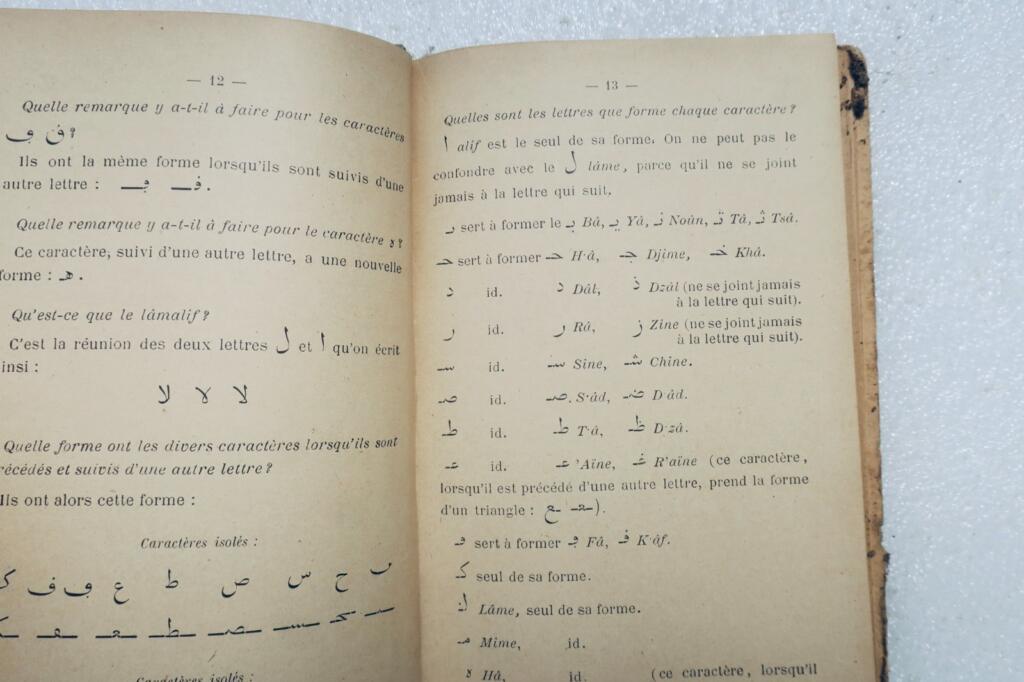 — 12 —
Quelle remarque y a-t-il à faire pour les caractères
ڢ ڧ ?
Ils ont la même forme lorsqu'ils sont suivis d'une
autre lettre :
Quelle remarque y a-t-il à faire pour le caractère ?
Ce caractère, suivi d'une autre lettre, a une nouvelle
forme : هـ .
Qu'est-ce que le lâmalif ?
C'est la réunion des deux lettres ل et ا qu'on écrit
insi :
لا لا لا
Quelle forme ont les divers caractères lorsqu'ils sont
récédés et suivis d'une autre lettre ?
Ils ont alors cette forme :
Caractères isolés :
ح س ص ط ع
Caractères isolés :
— 13 —
Quelles sont les lettres que forme chaque caractère ?
ا alif est le seul de sa forme. On ne peut pas le
confondre avec le ل lâme, parce qu'il ne se joint
jamais à la lettre qui suit.
sert à former le بـ Bâ, يـ Yâ, نـ Noùn, تـ Tâ, ثـ Tsâ.
حـ sert à former حـ H·â, جـ Djime, خـ Khâ.
د id. د Dâl, ذ Dzâl (ne se joint jamais
à la lettre qui suit).
ر id. ر Râ, ز Zine (ne se joint jamais
à la lettre qui suit).
سـ id. سـ Sine, شـ Chine.
صـ id. صـ S·âd, ضـ D·âd.
ط id. ط T·â, ظ D·zâ.
عـ id. عـ 'Aïne, غـ R'aïne (ce caractère,
lorsqu'il est précédé d'une autre lettre, prend la forme
d'un triangle : ـع ـعـ).
sert à former ڢـ Fâ, فـ K·âf.
كـ seul de sa forme.
Lâme, seul de sa forme.
مـ Mime, id.
Hâ, id. (ce caractère, lorsqu'il